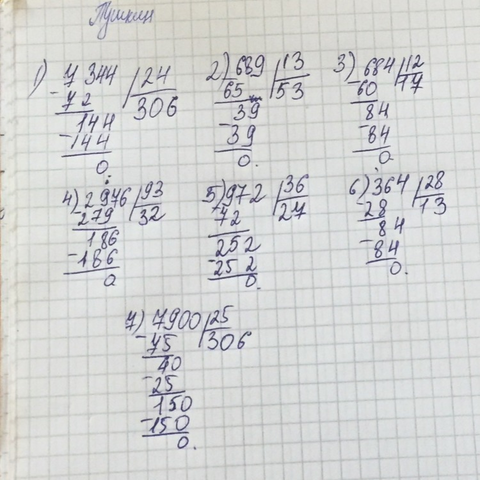 Пушкин
1) 7344 | 24
- 72 | 306
144
- 144
0.
2) 689 | 13
65 | 53
39
- 39
0.
3) 684 | 12
- 60 | 17
84
- 84
0
4) 2976 | 93
- 279 | 32
186
- 186
0
5) 972 | 36
- 72 | 27
252
- 252
0.
6) 364 | 28
- 28 | 13
84
- 84
0.
7) 7900 | 25
- 75 | 306
40
- 25
150
- 150
0.